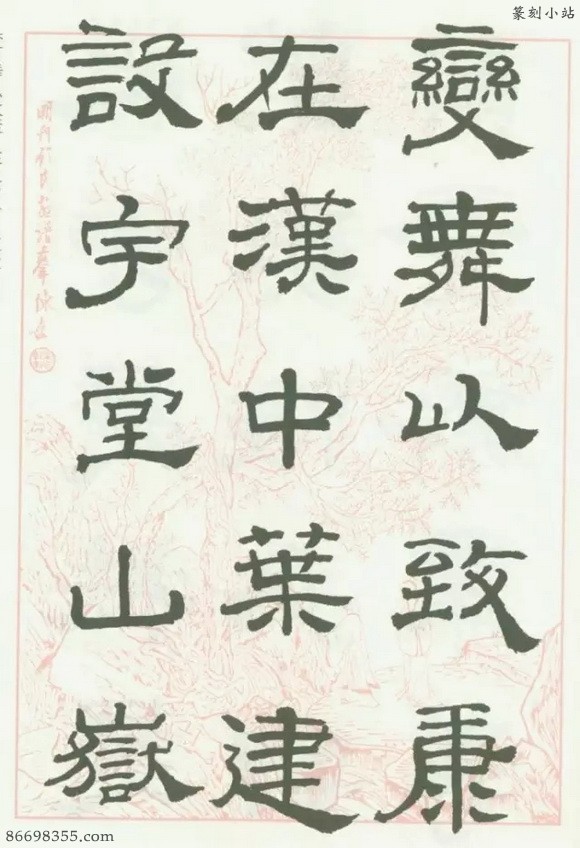 篆刻小站
變舞以致康
在漢中葉建
設宇堂山嶽
86698355.com